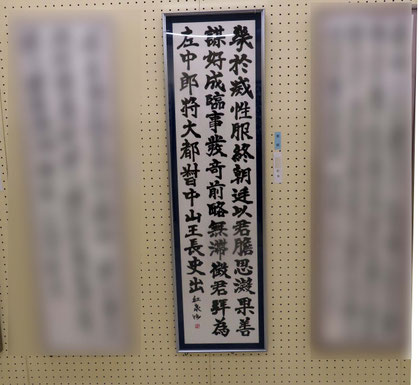 幾於烕性服終朝廷以君膽思凝果善
謀好成臨事發奇前略無滯徵君拜為
左中郎將大都督中山王長史出